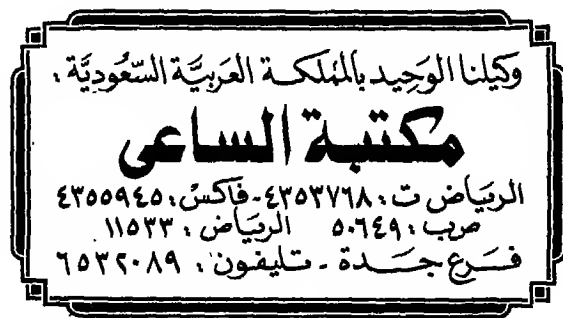 وَكيلنا الوَحِيد بالمَملكة العَربيَّة السّعُوديَّة :
مكتبة الساعى
الريَاض ت : ٤٣٥٣٧٦٨ - فاكسْ : ٤٣٥٥٩٤٥
ص ب : ٥٠٦٤٩ الريَاض : ١١٥٣٣
فَرع جَدة - تليفون : ٦٥٣٢٠٨٩